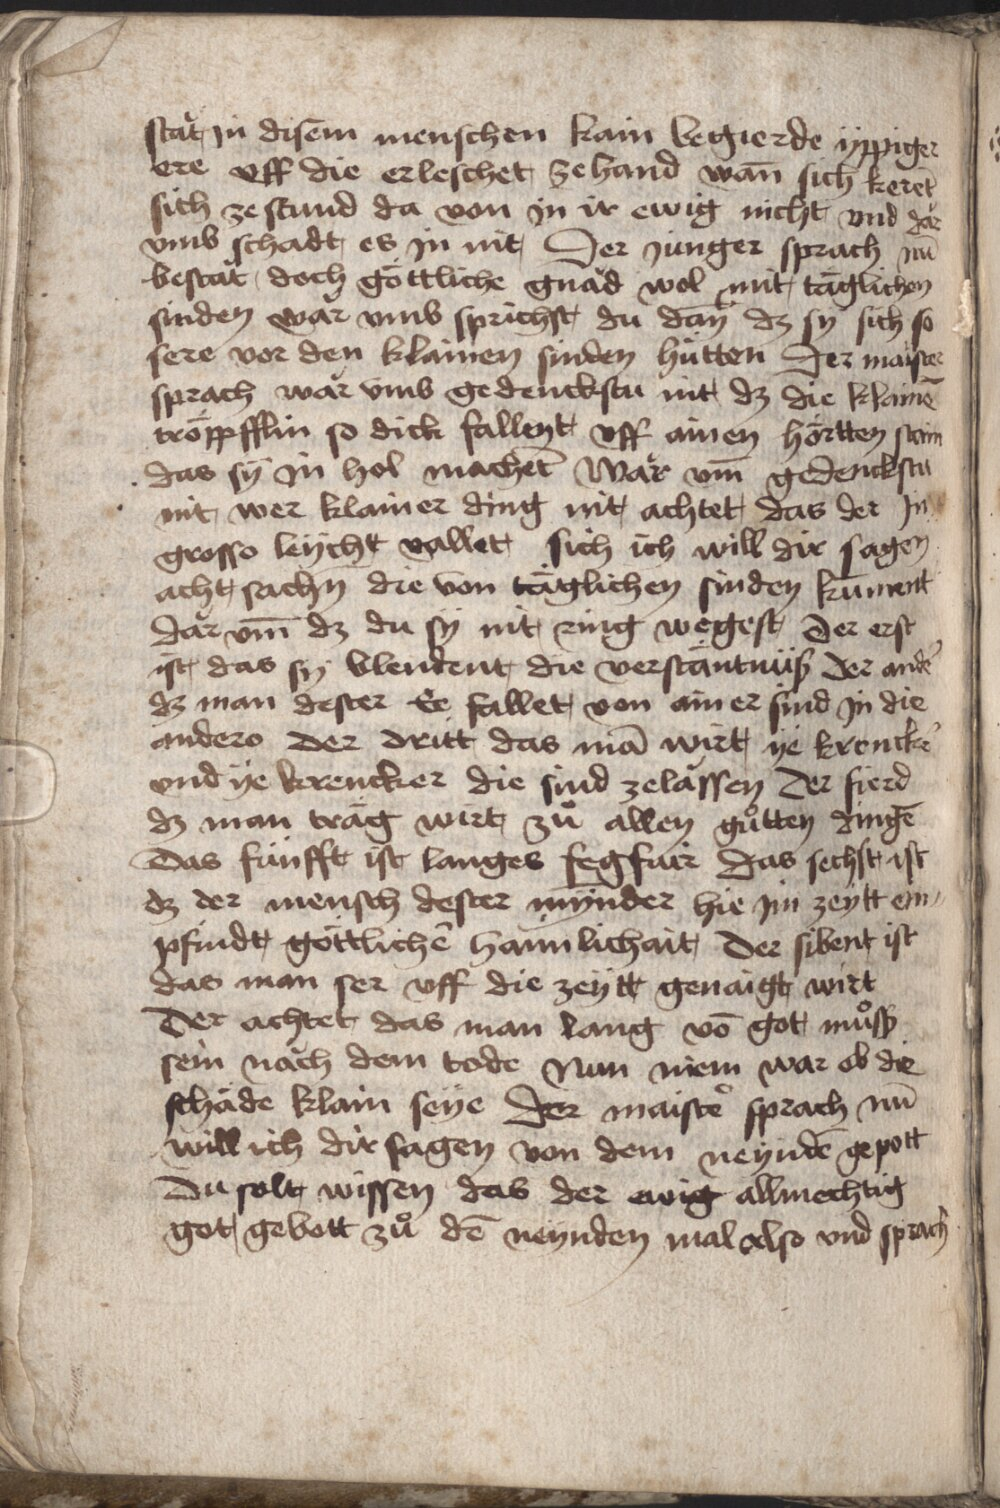 stat in disem menschen kain begierde ÿppiger
ere vff die erleschet ze hand wan̄ sich keret
sich ze stund da von in ir ewig nicht vnd dar
vmb schadt es in nit Der junger sprach nū
bestat doch göttliche gnad wol mit täglichen
sinden war vmb sprichst du dan̄ dz sy sich so
sere vor den klainen sinden hütten Der maister
sprach war vmb gedenckstu nit dz die klainē
tröppfflin so dick fallent vff ainen hörtten stain
das sÿ in hol machet War vm̄ gedenckstu
nit wer klainer ding nit achtet das der in
grosso leÿcht vallet sich ich will dir sagen
acht sachn̄ die von täglichen sinden kūment
dar vm̄ dz du sÿ nit ring wegest Der erst
ist das sy blendent die verstäntnüß Der ander
dz man dester Ee fallet von ainer sind in die
andero Der dritt das mā wirt ÿe krencker
vnd ÿe krencker die sind zelassen Der fierd
dz man träg wirt zů allen gůtten dingē
Das fünfft ist langes fegfuir Das sechst ist
dz der mensch dester mÿnder hie im zeÿtt em-
pfindt göttlichē haimlichait Der sibent ist
das man ser vff die zeÿtt genaigt wirt
Der achtet das man lang vō got můß
sein nach dem tode Nun niem war ob die
schäde klain seÿe Der maister sprach nū
will ich dir sagen von dem neÿndē gepott
Du solt wissen das der ewig allmechtig
got gebott zů dē neÿnden mal also vnd sprach